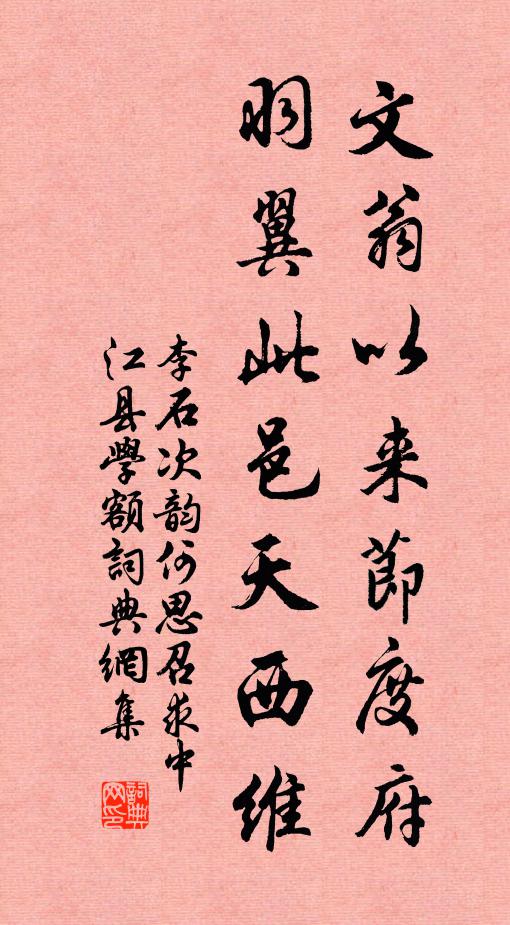 文翁以来節度府
羽翼此邑天西维
李石次韵何思召求中
江县學额詞典網集
詞典
网印